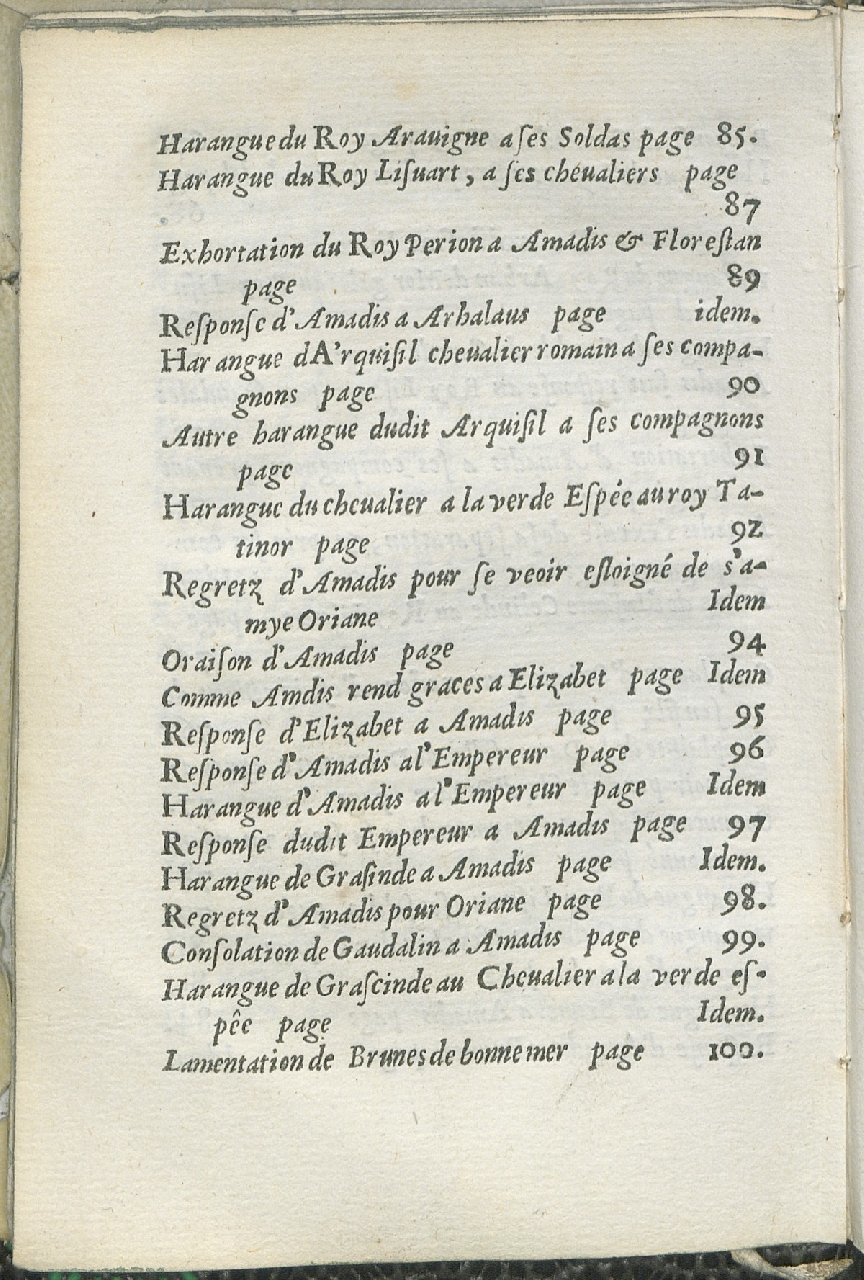 Harangue du Roy Arauigne a ſes Soldas page 85.
Harangue du Roy Liſuart, a ſes chevaliers page
87
Exhortation du Roy Perion a Amadis & Floreſtan
page 89
Reſponſe d'Amadis a Arhalaus page idem.
Harangue dA'rquiſil chevalier romain a ſes compa-
gnons page 90
Autre harangue dudit Arquiſil a ſes compagnons
page 91
Harangue du chevalier a la verde Eſpée au roy Ta-
tinor page 92
Regretz d'Amadis pour se veoir eſloigné de s'a-
mye Oriane Idem
Oraiſon d'Amadis page 94
Comme Amdis rend graces a Elizabet page Idem
Reſponſe d'Elizabet a Amadis page 95
Reſponſe d'Amadis a l'Empereur page 96
Harangue d'Amadis a l'Empereur page Idem
Reſponſe dudit Empereur a Amadis page 97
Harangue de Graſinde a Amadis page Idem.
Regretz d'Amadis pour Oriane page 98.
Conſolation de Gaudalin a Amadis page 99.
Harangue de Graſcinde au Chevalier a la verde eſ-
pêe page Idem.
Lamentation de Brunes de bonne mer page 100.